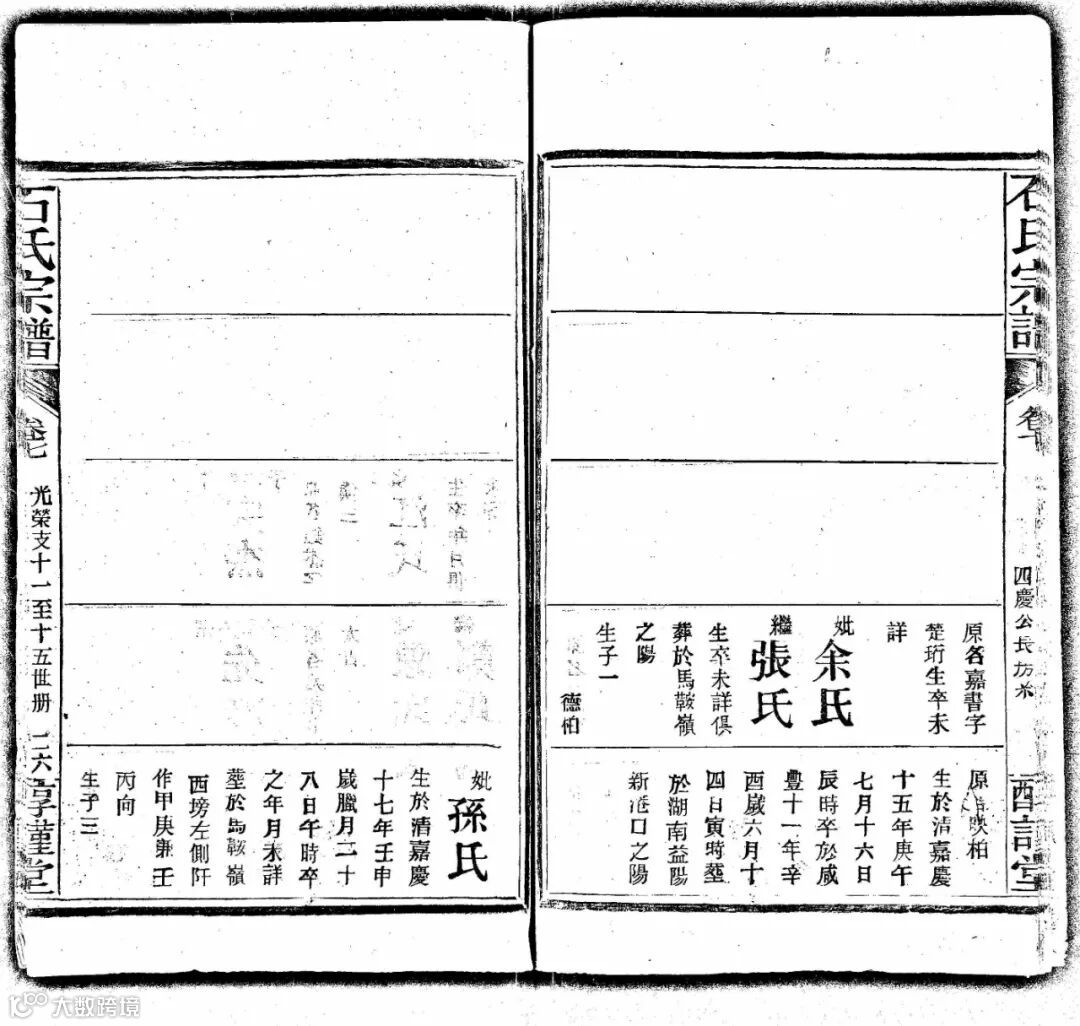 石氏宗譜
卷七
四慶公長房
原名嘉書字
楚珩生卒未
詳
妣余氏
繼張氏
生卒未詳俱
葬於馬鞍嶺
之陽
生子一
德柏
柏
生於清嘉慶
十五年庚午
七月十六日
辰時卒於咸
豐十一年辛
酉歲六月十
四日寅時塟
於湖南益陽
新港口之陽
妣孫氏
生於清嘉慶
十七年壬申
歲臘月二十
八日午時卒
之年月未詳
塟於馬鞍嶺
西塝左側阡
作甲庚兼壬
丙向
生子三
石氏宗譜
卷七
光榮支十一至十五世册
二六
大数跨境